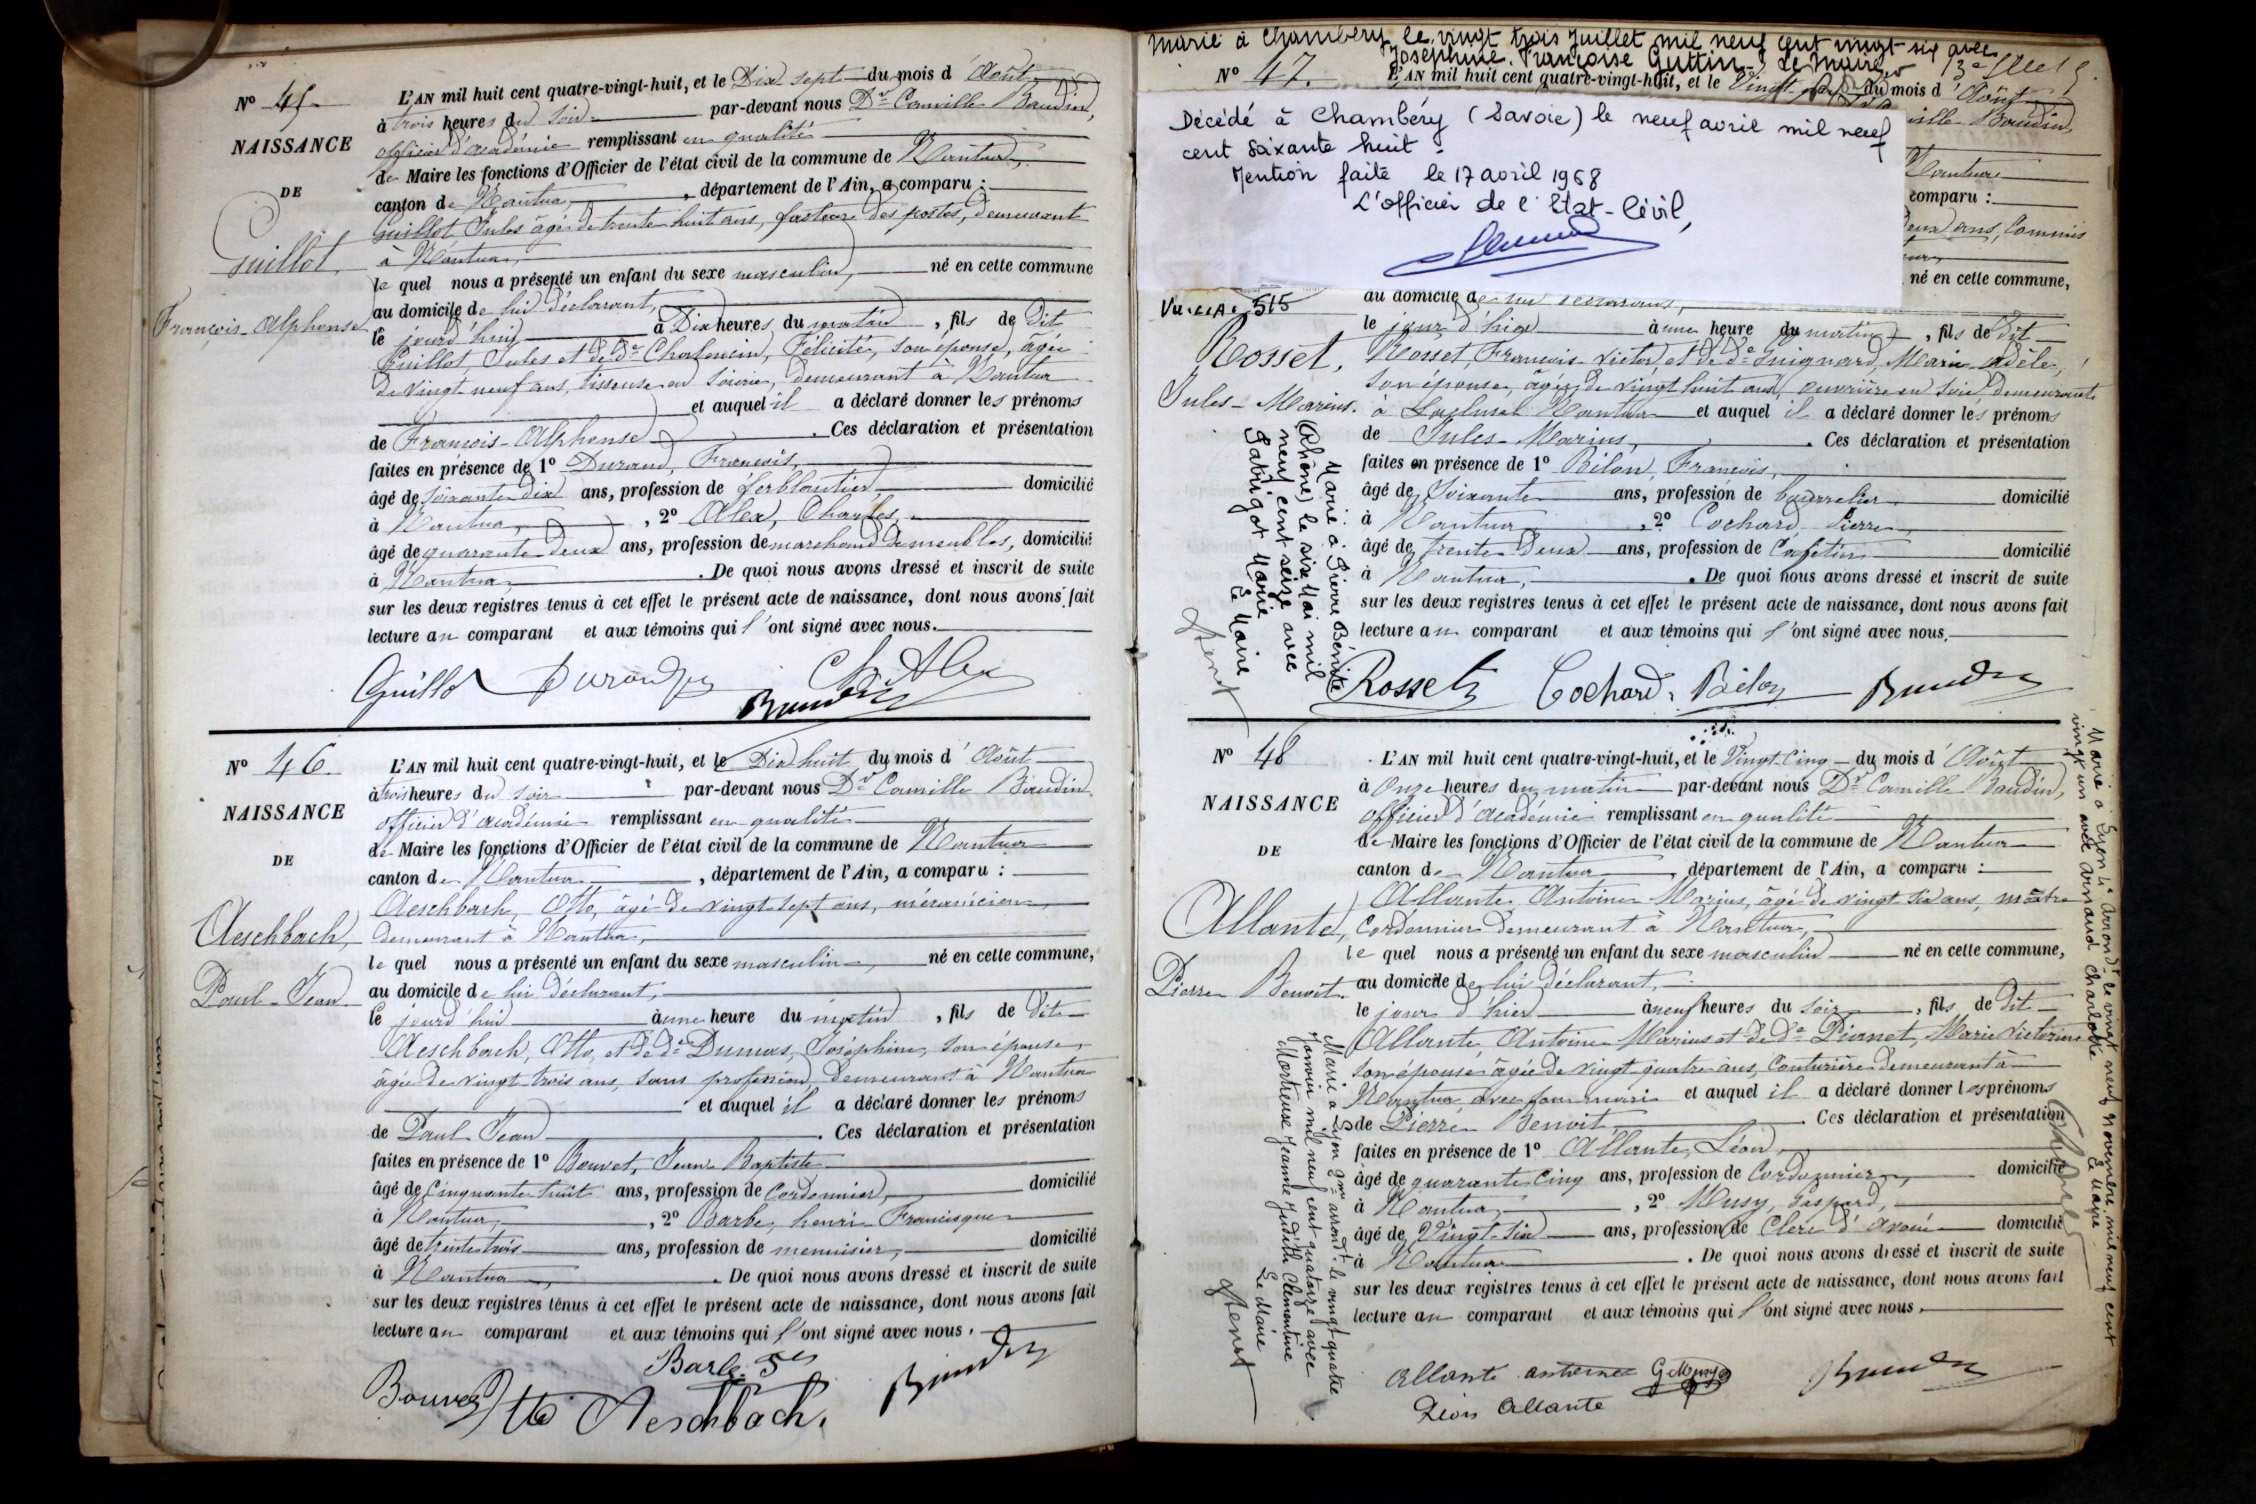 Nº 45
NAISSANCE
DE
Guillot
François-Alphonse
L'AN mil huit cent quatre-vingt-huit, et le Dix sept du mois d'Août
à trois heures du soir par-devant nous Dr Camille Baudin,
officier d'académie remplissant en qualité
de Maire les fonctions d'Officier de l'état civil de la commune de Nantua,
canton de Nantua, département de l'Ain, a comparu :
Guillot Jules âgé de trente huit ans, facteur des postes, demeurant
à Nantua,
le quel nous a présenté un enfant du sexe masculin, né en cette commune
au domicile de lui déclarant,
le jourd'hui à Dix heures du matin, fils de dit
Guillot, Jules et de de Charlemein, Félicité, son épouse, âgée
de vingt neuf ans, tisseuse en soierie, demeurant à Nantua
et auquel il a déclaré donner les prénoms
de François-Alphonse. Ces déclaration et présentation
faites en présence de 1º Durand, François,
âgé de soixante dix ans, profession de ferblantier, domicilié
à Nantua, 2º Alex, Charles,
âgé de quarante deux ans, profession de marchand de meubles, domicilié
à Nantua, . De quoi nous avons dressé et inscrit de suite
sur les deux registres tenus à cet effet le présent acte de naissance, dont nous avons fait
lecture au comparant et aux témoins qui l'ont signé avec nous.
Guillot Durand Ch Alex
Baudin
Nº 46
NAISSANCE
DE
Aeschbach,
Paul-Jean
L'AN mil huit cent quatre-vingt-huit, et le Dix huit du mois d'Août
à trois heures du soir par-devant nous Dr Camille Baudin
officier d'académie remplissant en qualité
de Maire les fonctions d'Officier de l'état civil de la commune de Nantua
canton de Nantua, département de l'Ain, a comparu :
Aeschbach, Otto, âgé de vingt sept ans, mécanicien
demeurant à Nantua,
le quel nous a présenté un enfant du sexe masculin, né en cette commune,
au domicile de lui déclarant,
le jourd'hui à une heure du matin, fils de dit
Aeschbach, Otto, et de de Dumas, Joséphine, son épouse,
âgée de vingt trois ans, sans profession, demeurant à Nantua
et auquel il a déclaré donner les prénoms
de Paul Jean. Ces déclaration et présentation
faites en présence de 1º Bouvet, Jean Baptiste
âgé de Cinquante huit ans, profession de Cordonnier, domicilié
à Nantua, 2º Barbe, henri Francisque
âgé de trente trois ans, profession de menuisier, domicilié
à Nantua, . De quoi nous avons dressé et inscrit de suite
sur les deux registres tenus à cet effet le présent acte de naissance, dont nous avons fait
lecture au comparant et aux témoins qui l'ont signé avec nous.
Bouvet Barbe Otto Aeschbach. Baudin
Marié à Chambéry le vingt trois Juillet mil neuf cent vingt-six avec
Joséphine Françoise Guttin Le Maire
Nº 47.
L'AN mil huit cent quatre-vingt-huit, et le Vingt du mois d'Août
Décédé à Chambéry (Savoie) le neuf avril mil neuf
cent soixante huit.
Mention faite le 17 avril 1968
L'officier de l'Etat-Civil,
mille Baudin,
Nantua
comparu :
deux ans, Commis
né en cette commune,
515
Rosset,
Jules-Marius.
au domicile de lui déclarant,
le jour d'hier à une heure du matin, fils de dit
Rosset, François-Victor, et de de Guignard, Marie Adèle,
son épouse, âgée de vingt huit ans, ouvrière en soie, demeurant
à Nantua et auquel il a déclaré donner les prénoms
de Jules-Marius, . Ces déclaration et présentation
faites en présence de 1º Bélon, François,
âgé de Soixante ans, profession de bourrelier domicilié
à Nantua, 2º Cochard Pierre
âgé de trente deux ans, profession de Cafetier domicilié
à Nantua, . De quoi nous avons dressé et inscrit de suite
sur les deux registres tenus à cet effet le présent acte de naissance, dont nous avons fait
lecture au comparant et aux témoins qui l'ont signé avec nous.
Marié à Pierre Bénite
(Rhône) le six Mai mil
neuf cent seize avec
Gabrigot Marie
Le Maire
Rosset Cochard Bélon Baudin
Nº 48
NAISSANCE
DE
Allante,
Pierre Benoit
L'AN mil huit cent quatre-vingt-huit, et le Vingt-Cinq du mois d'Août
à Onze heures du matin par-devant nous Dr Camille Baudin,
officier d'académie remplissant en qualité
de Maire les fonctions d'Officier de l'état civil de la commune de Nantua
canton de Nantua, département de l'Ain, a comparu :
Allante, Antoine Marius, âgé de vingt six ans, maître
Cordonnier demeurant à Nantua,
le quel nous a présenté un enfant du sexe masculin né en cette commune,
au domicile de lui déclarant,
le jour d'hier à neuf heures du soir, fils de dit
Allante, Antoine Marius et de de Pianet, Marie Victorine
son épouse âgée de vingt quatre ans, Couturière demeurant à
Nantua avec son mari et auquel il a déclaré donner les prénoms
de Pierre Benoit, Ces déclaration et présentation
faites en présence de 1º Allante, Léon,
âgé de quarante cinq ans, profession de Cordonnier, domicilié
à Nantua, 2º Musy, Gaspard,
âgé de Vingt-six ans, profession de Clerc d'avoué domicilié
à Nantua . De quoi nous avons dressé et inscrit de suite
sur les deux registres tenus à cet effet le présent acte de naissance, dont nous avons fait
lecture au comparant et aux témoins qui l'ont signé avec nous.
Marié à Lyon 3me arrondt le vingt quatre
Janvier mil neuf cent quatorze avec
Mortreuse Jeanne Judith Clémentine
Le Maire
Marié à Lyon 4e arrondt le vingt neuf Novembre mil neuf cent
vingt un avec Arnaud Charlotte
Le Maire
Allante antoine G Musy Baudin
Léon Allante